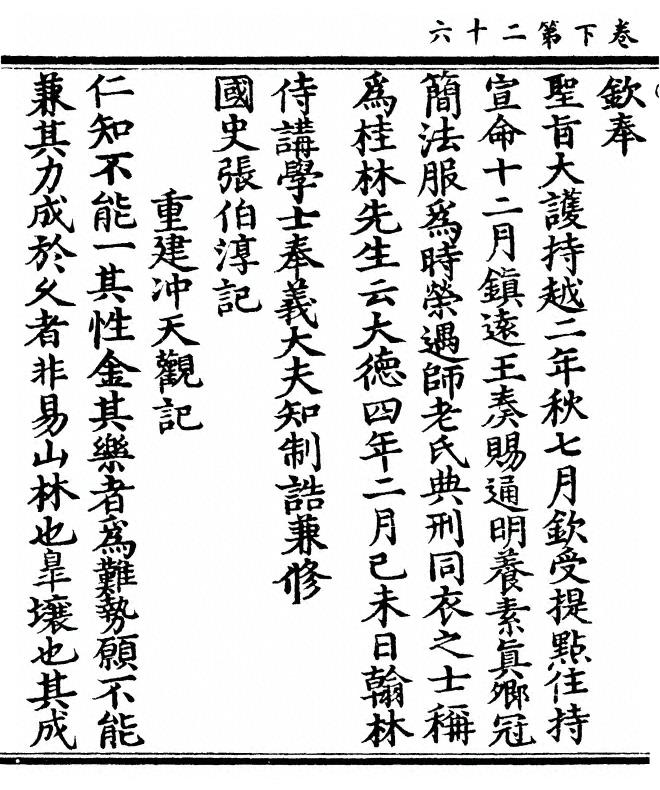 卷下第二十六
欽奉
聖旨大護持越二年秋七月欽受提點住持
宣命十二月鎮遠王奏賜通明養素真卿冠
簡法服爲時榮遇師老氏典刑同衣之士稱
爲桂林先生云大德四年二月己未日翰林
侍講學士奉義大夫知制誥兼修
國史張伯淳記
重建冲天觀記
仁知不能一其性金其樂者爲難勢願不能
兼其力成於久者非易山林也皐壤也其成